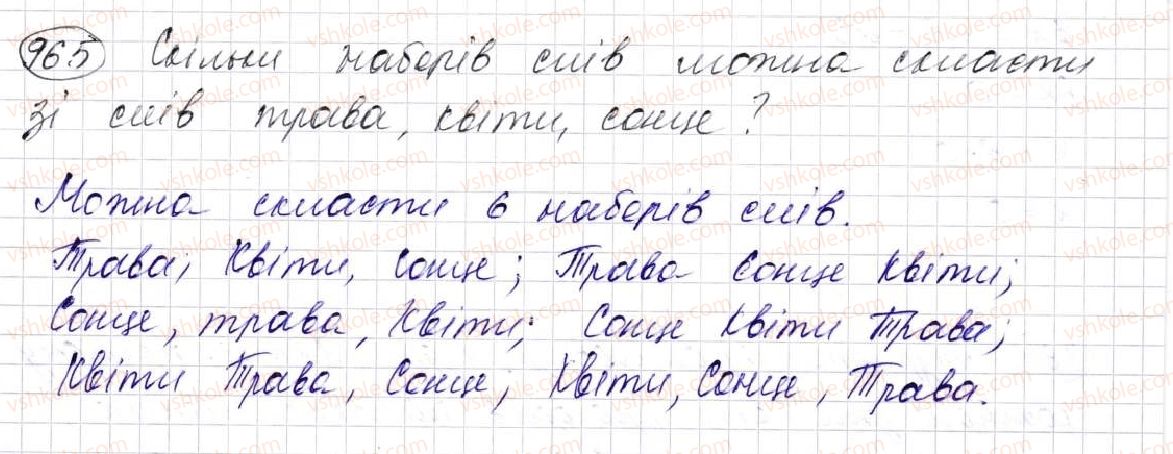 965 Скільки наборів слів можна скласти
зі слів трава, квіти, сонце?
Можна скласти 6 наборів слів.
Трава, Квіти, Сонце; Трава Сонце Квіти;
Сонце, трава, Квіти; Сонце Квіти Трава;
Квіти Трава, Сонце, Квіти, Сонце, Трава.